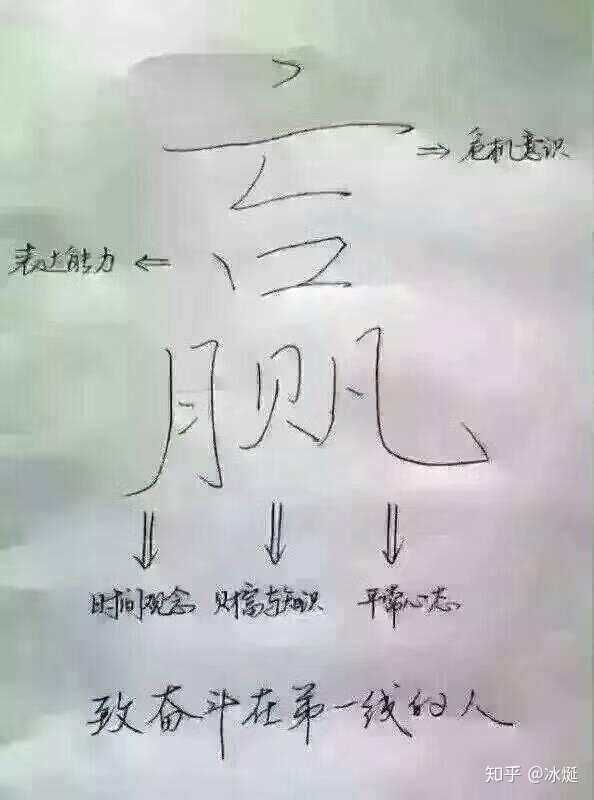 赢
危机意识
表达能力
时间观念 财富与知识 平常心态
致奋斗在第一线的人
知乎 @冰烻